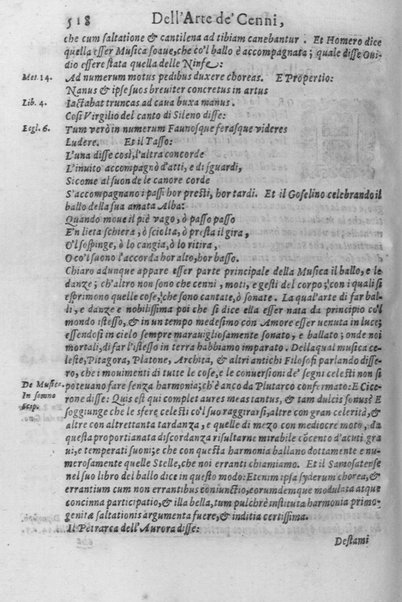 518 Dell'Arte de' Cenni,
che cum saltatione & cantilena ad tibiam canebantur. Et Homero dice
quella esser Musica soaue, che co'l ballo è accompagnata; quale disse Oui-
dio essere stata quella delle Ninfe:
Met. 14. Ad numerum motus pedibus duxere choreas. E Propertio:
Nanus & ipse suos breuiter concretus in artus
Lib. 4. Iactabat truncas ad caua buxa manus.
Così Virgilio del canto di Sileno disse:
Egl. 6. Tum verò in numerum Faunosque ferasque videres
Ludere. Et il Tasso:
L'una disse così, l'altra concorde
L'inuito accompagnò d'atti, e di sguardi,
Sicome al suon de le canore corde
S'accompagnano i passi hor presti, hor tardi. Et il Goselino celebrando il
ballo della sua amata Alba:
Quando moue il piè vago, ò passo passo
E'n lieta schiera, ò sciolta, ò presta il gira,
O'l sospinge, ò lo cangia, ò lo ritira,
O co'l suono l'accorda hor alto, hor basso.
Chiaro adunque appare esser parte principale della Musica il ballo, e le
danze; ch'altro non sono che cenni, moti, e gesti del corpo, con i quali si
esprimono quelle cose, che sono cantate, ò sonate. La qual'arte di far bal-
li, e danze e nobilissima poi che si dice ella esser nata da principio co'l
mondo istesso, & in un tempo medesimo con Amore esser venuta in luce;
essendosi in cielo sempre marauigliosamente sonato, e ballato; onde noi
mortali, di far l'istesso in terra habbiamo imparato. Della qual musica ce-
leste, Pitagora, Platone, Archita, & altri antichi Filosofi parlando disse-
ro, che i mouimenti di tutte le cose, e le conuersioni de' segni celesti non si
De Music. poteuano fare senza harmonia; ch'è anco da Plutarco confermato: E Cice-
In somno rone disse: Quis est qui complet aures meas tantus, & tam dulcis sonus? E
Scip. soggiunge che le sfere celesti co'l suo raggirarsi, altre con gran celerità, &
altre con altrettanta tardanza, e quelle di mezo con mediocre moto, da
questa proportionata discordanza risultarne mirabile cōcento d'acuti graui,
e temperati suoni; e che con questa harmonia ballano dottamente e nu-
merosamente quelle Stelle, che noi erranti chiamiamo. Et il Samosatense
nel suo libro del ballo dice in questo modo: Etenim ipsa syderum chorea, &
errantium cum non errantibus coniunctio, eorumdemque modulata atque
concinna participatio, & illa bella, tum pulchrè instituta harmonia primo-
genitæ saltationis argumenta fuere, & inditia certissima.
Il Petrarca dell'Aurora disse:
Destami